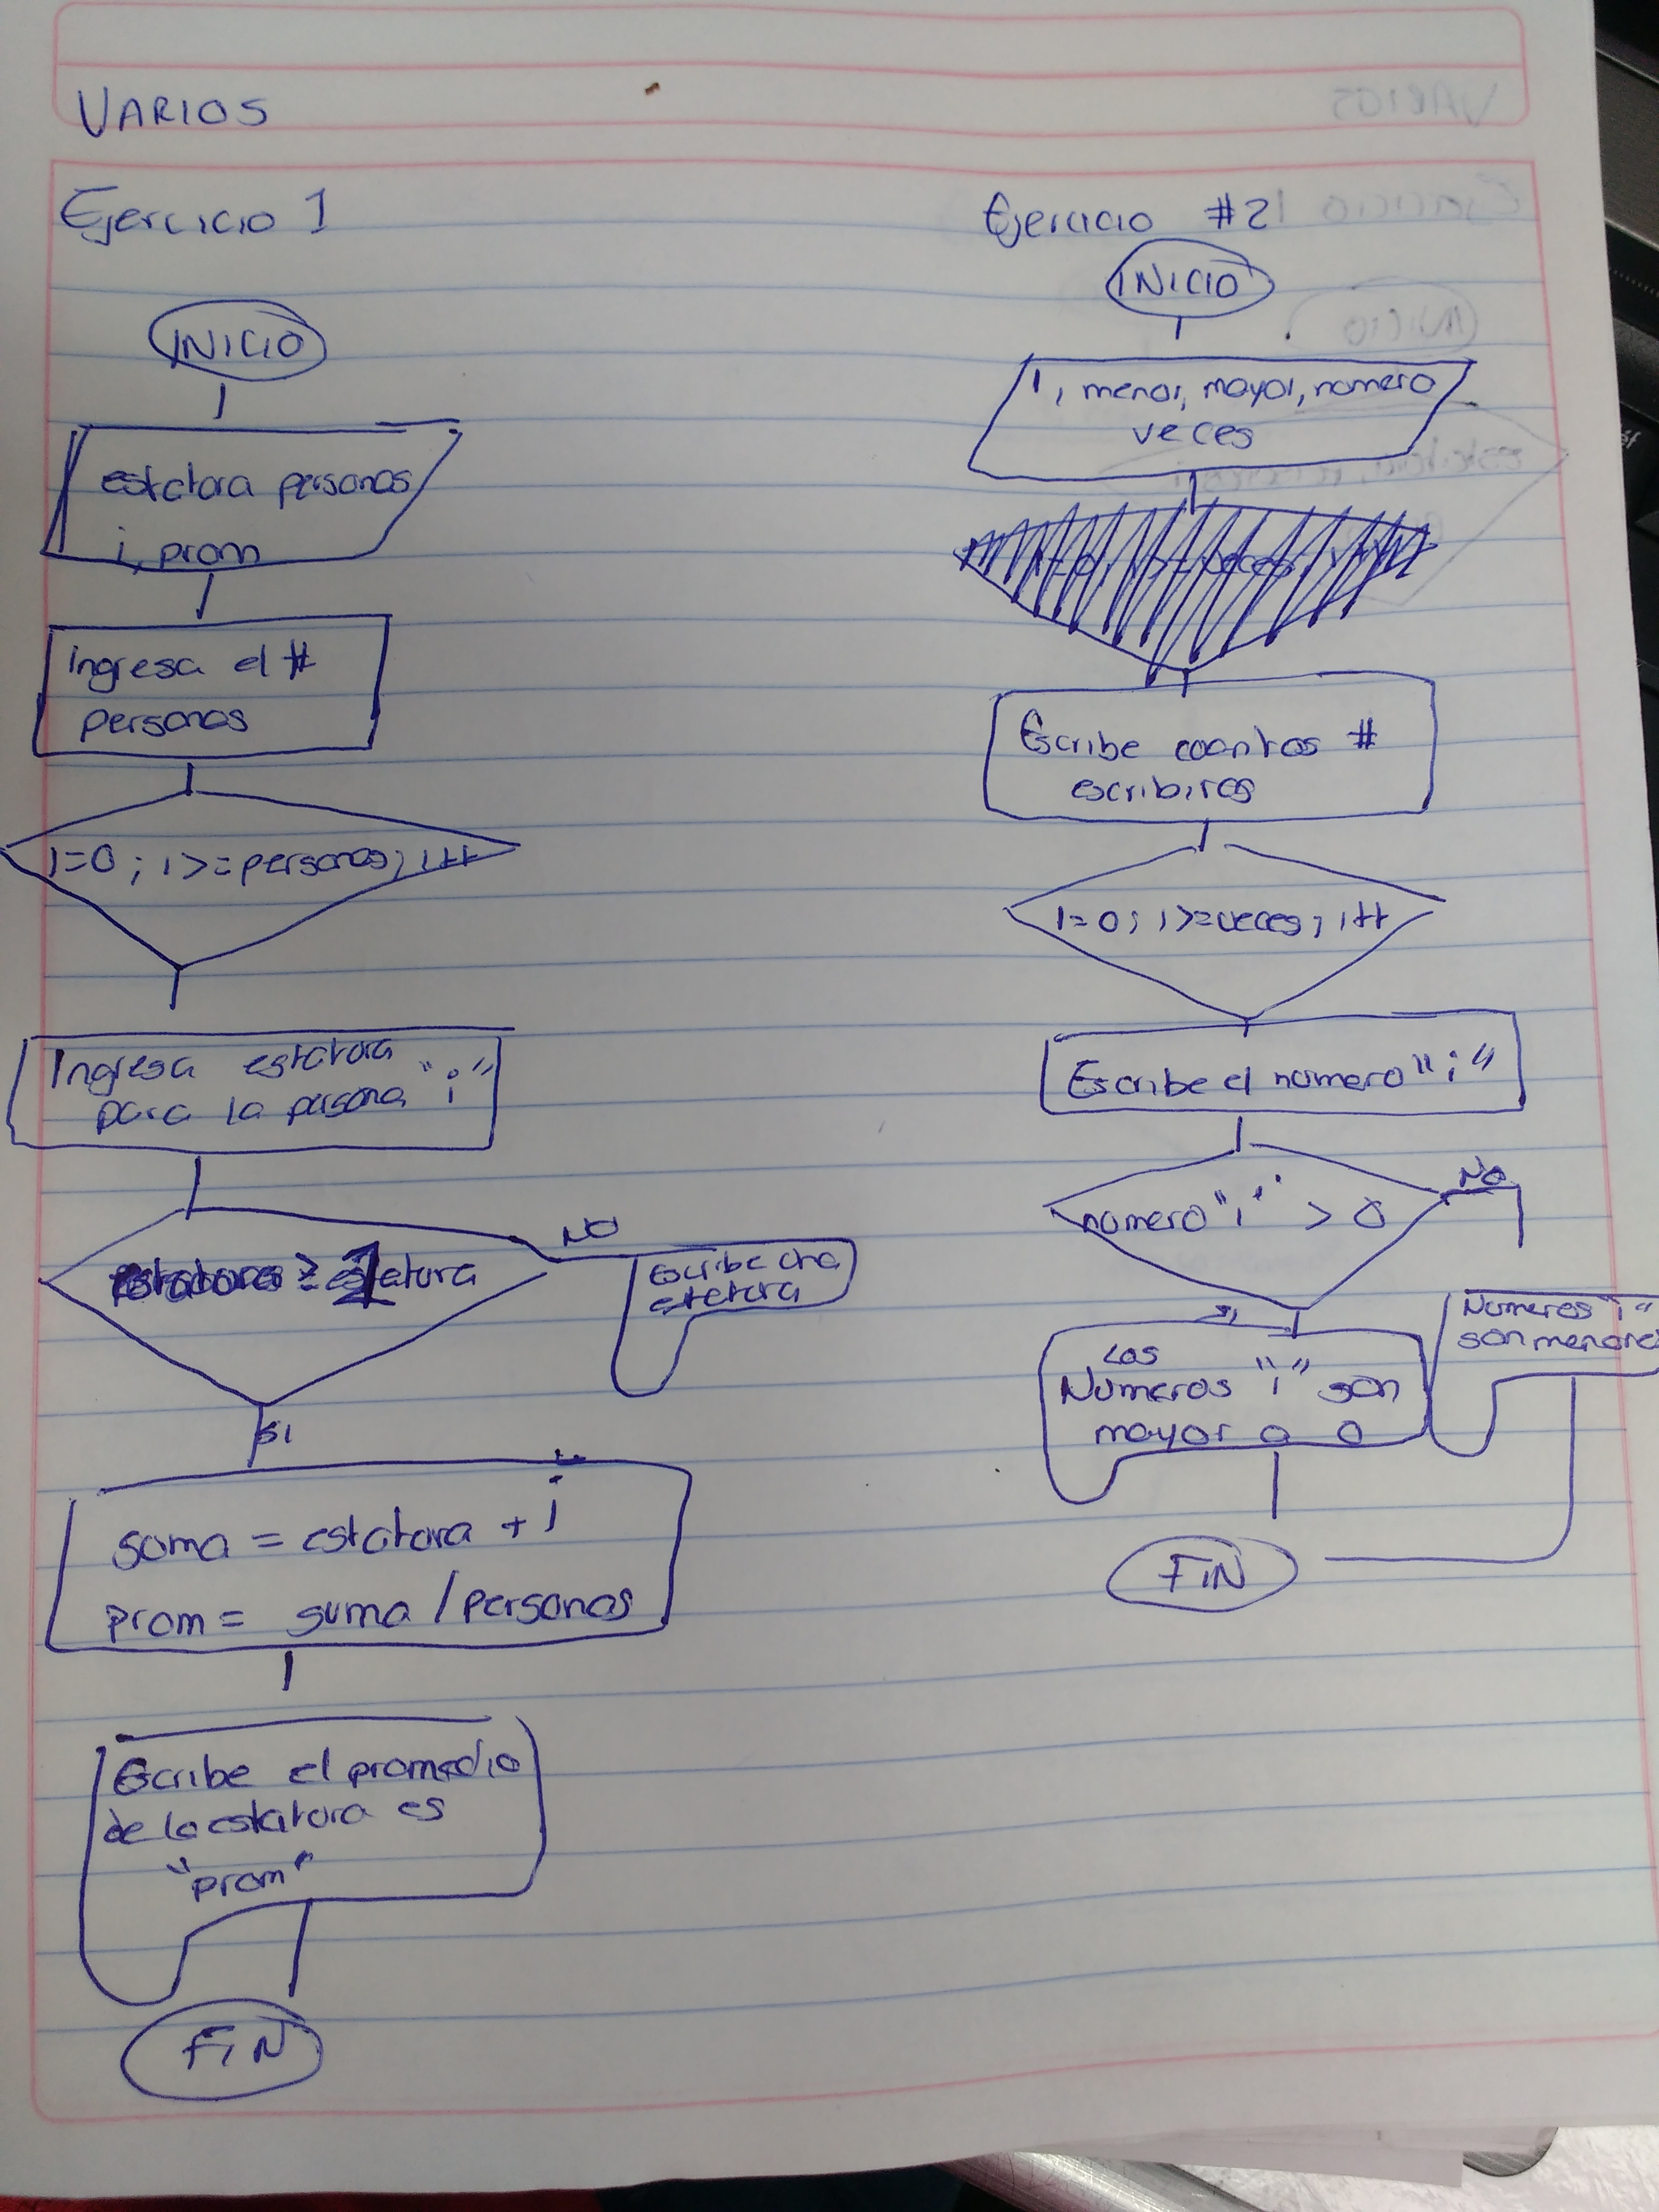 VARIOS
Ejercicio 1
INICIO
estatura personas
i, prom
ingresa el #
personas
i=0 ; i>=personas; i++
Ingresa estatura
para la persona "i"
NO
Escribe otra
estatura
SI
suma = estatura + i
prom = suma / personas
Escribe el promedio
de la estatura es
"prom"
FIN
Ejercicio #2
INICIO
i, menor, mayor, numero
veces
Escribe cuantos #
escribires
i=0; i>=veces; i++
Escribe el numero "i"
numero "i" > 0
NO
si
Los
Numeros "i" son
mayor a 0
Numeros "i"
son menores
FIN